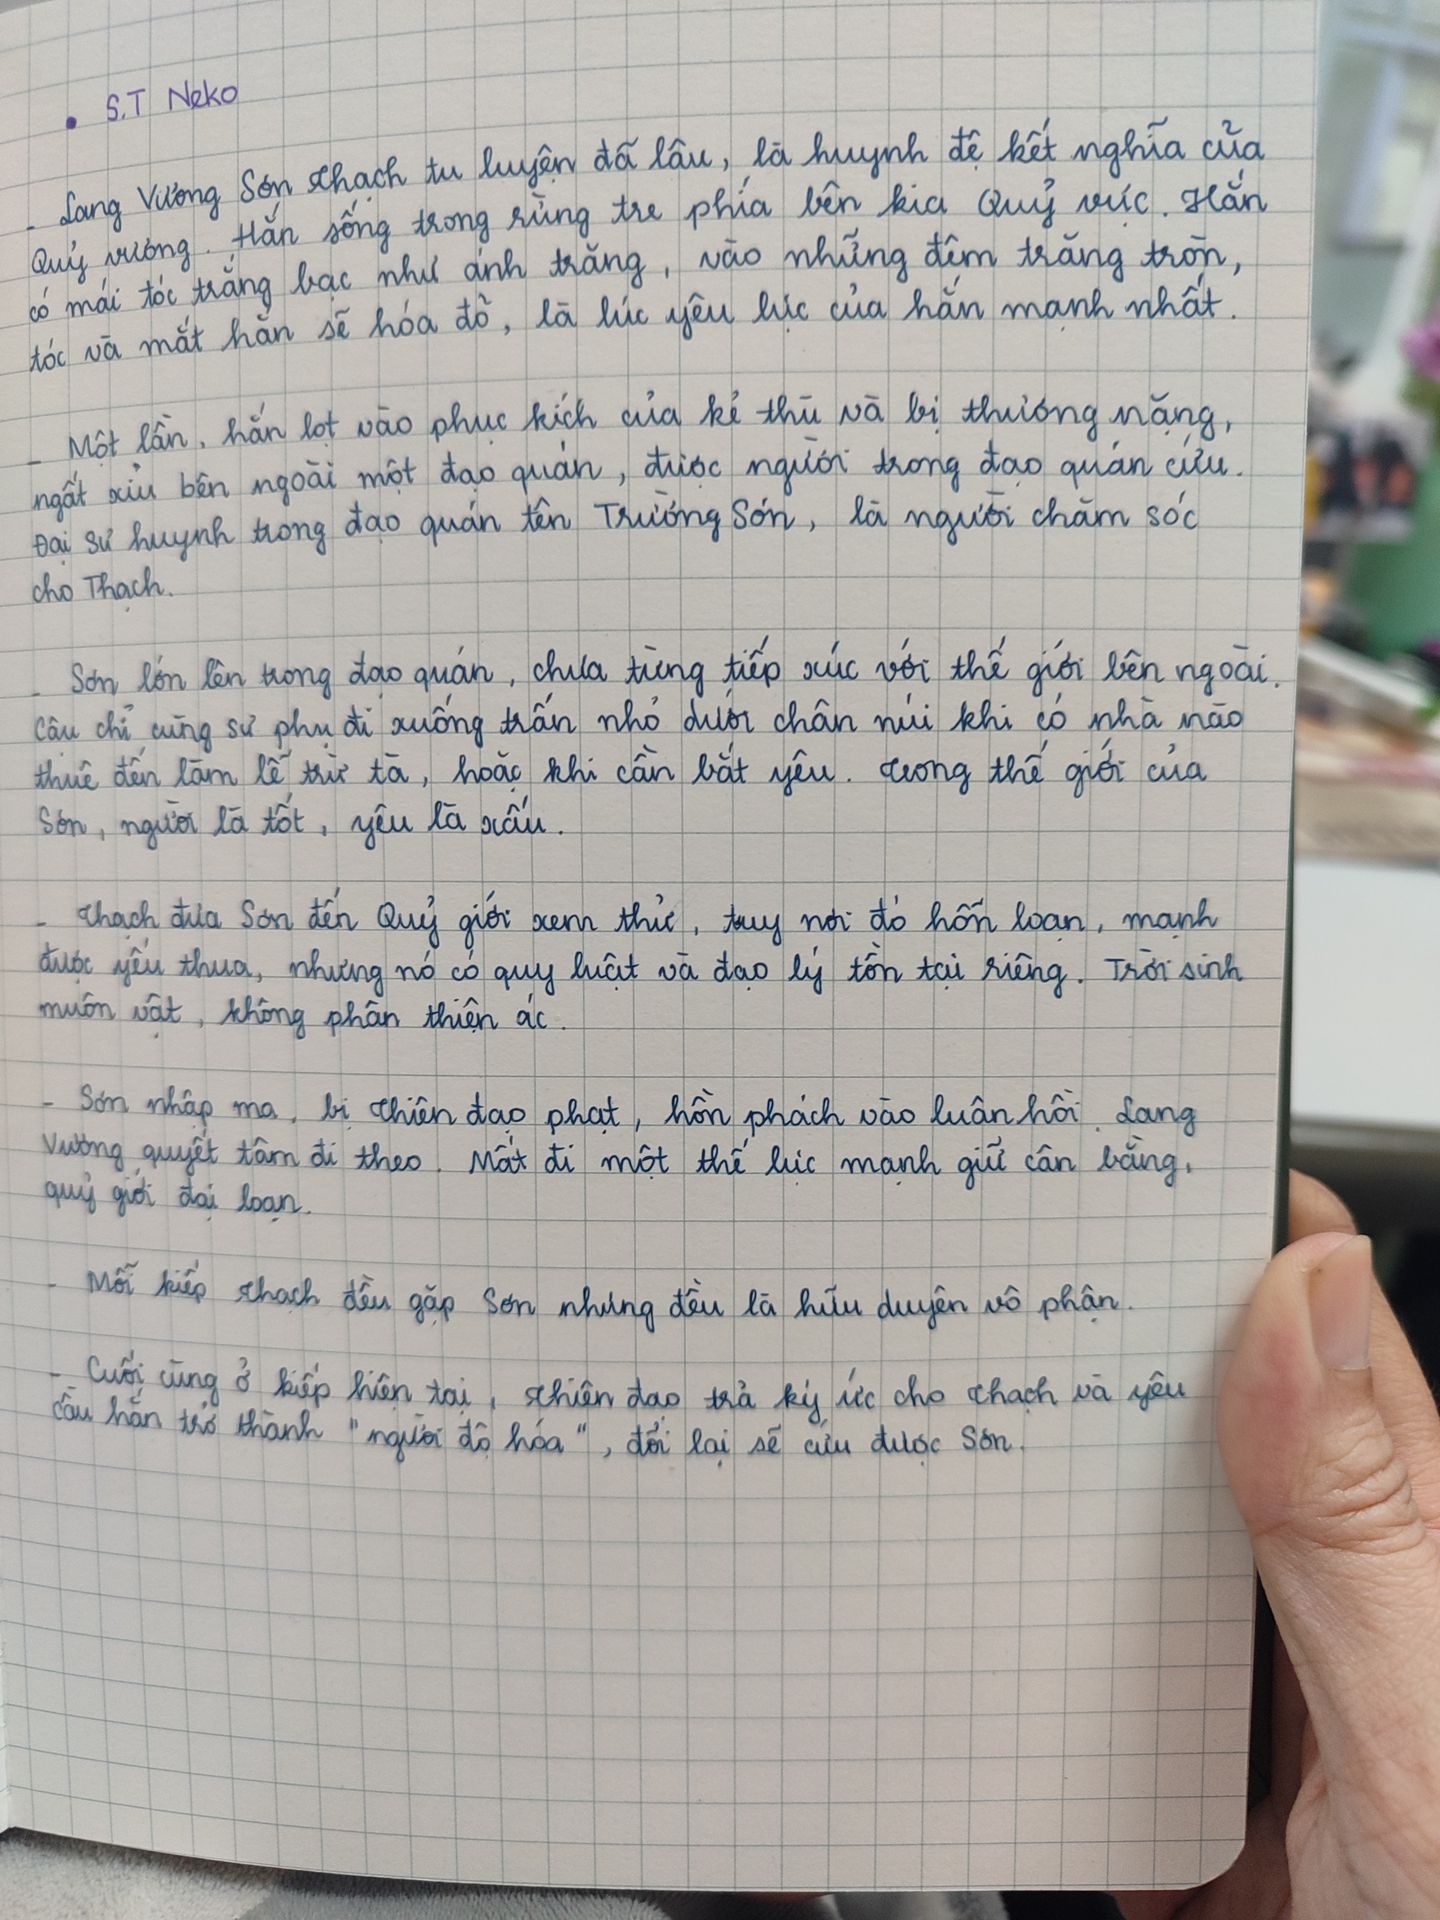 • S.T Neko
- Lang Vương Sơn Thạch tu luyện đã lâu, là huynh đệ kết nghĩa của
Quỷ vương. Hắn sống trong rừng tre phía bên kia Quỷ vực. Hắn
có mái tóc trắng bạc như ánh trăng, vào những đêm trăng tròn,
tóc và mắt hắn sẽ hóa đỏ, là lúc yêu lực của hắn mạnh nhất.
- Một lần, hắn lọt vào phục kích của kẻ thù và bị thương nặng,
ngất xỉu bên ngoài một đạo quán, được người trong đạo quán cứu.
Đại sư huynh trong đạo quán tên Trường Sơn, là người chăm sóc
cho Thạch.
- Sơn lớn lên trong đạo quán, chưa từng tiếp xúc với thế giới bên ngoài.
Cậu chỉ cùng sư phụ đi xuống trấn nhỏ dưới chân núi khi có nhà nào
thuê đến làm lễ trừ tà, hoặc khi cần bắt yêu. Trong thế giới của
Sơn, người là tốt, yêu là xấu.
- Thạch đưa Sơn đến Quỷ giới xem thử, tuy nơi đó hỗn loạn, mạnh
được yếu thua, nhưng nó có quy luật và đạo lý tồn tại riêng. Trời sinh
muôn vật, không phân thiện ác.
- Sơn nhập ma, bị Thiên đạo phạt, hồn phách vào luân hồi. Lang
Vương quyết tâm đi theo. Mất đi một thế lực mạnh giữ cân bằng,
quỷ giới đại loạn.
- Mỗi kiếp Thạch đều gặp Sơn nhưng đều là hữu duyên vô phận.
- Cuối cùng ở kiếp hiện tại, Thiên đạo trả ký ức cho Thạch và yêu
cầu hắn trở thành "người độ hóa", đổi lại sẽ cứu được Sơn.